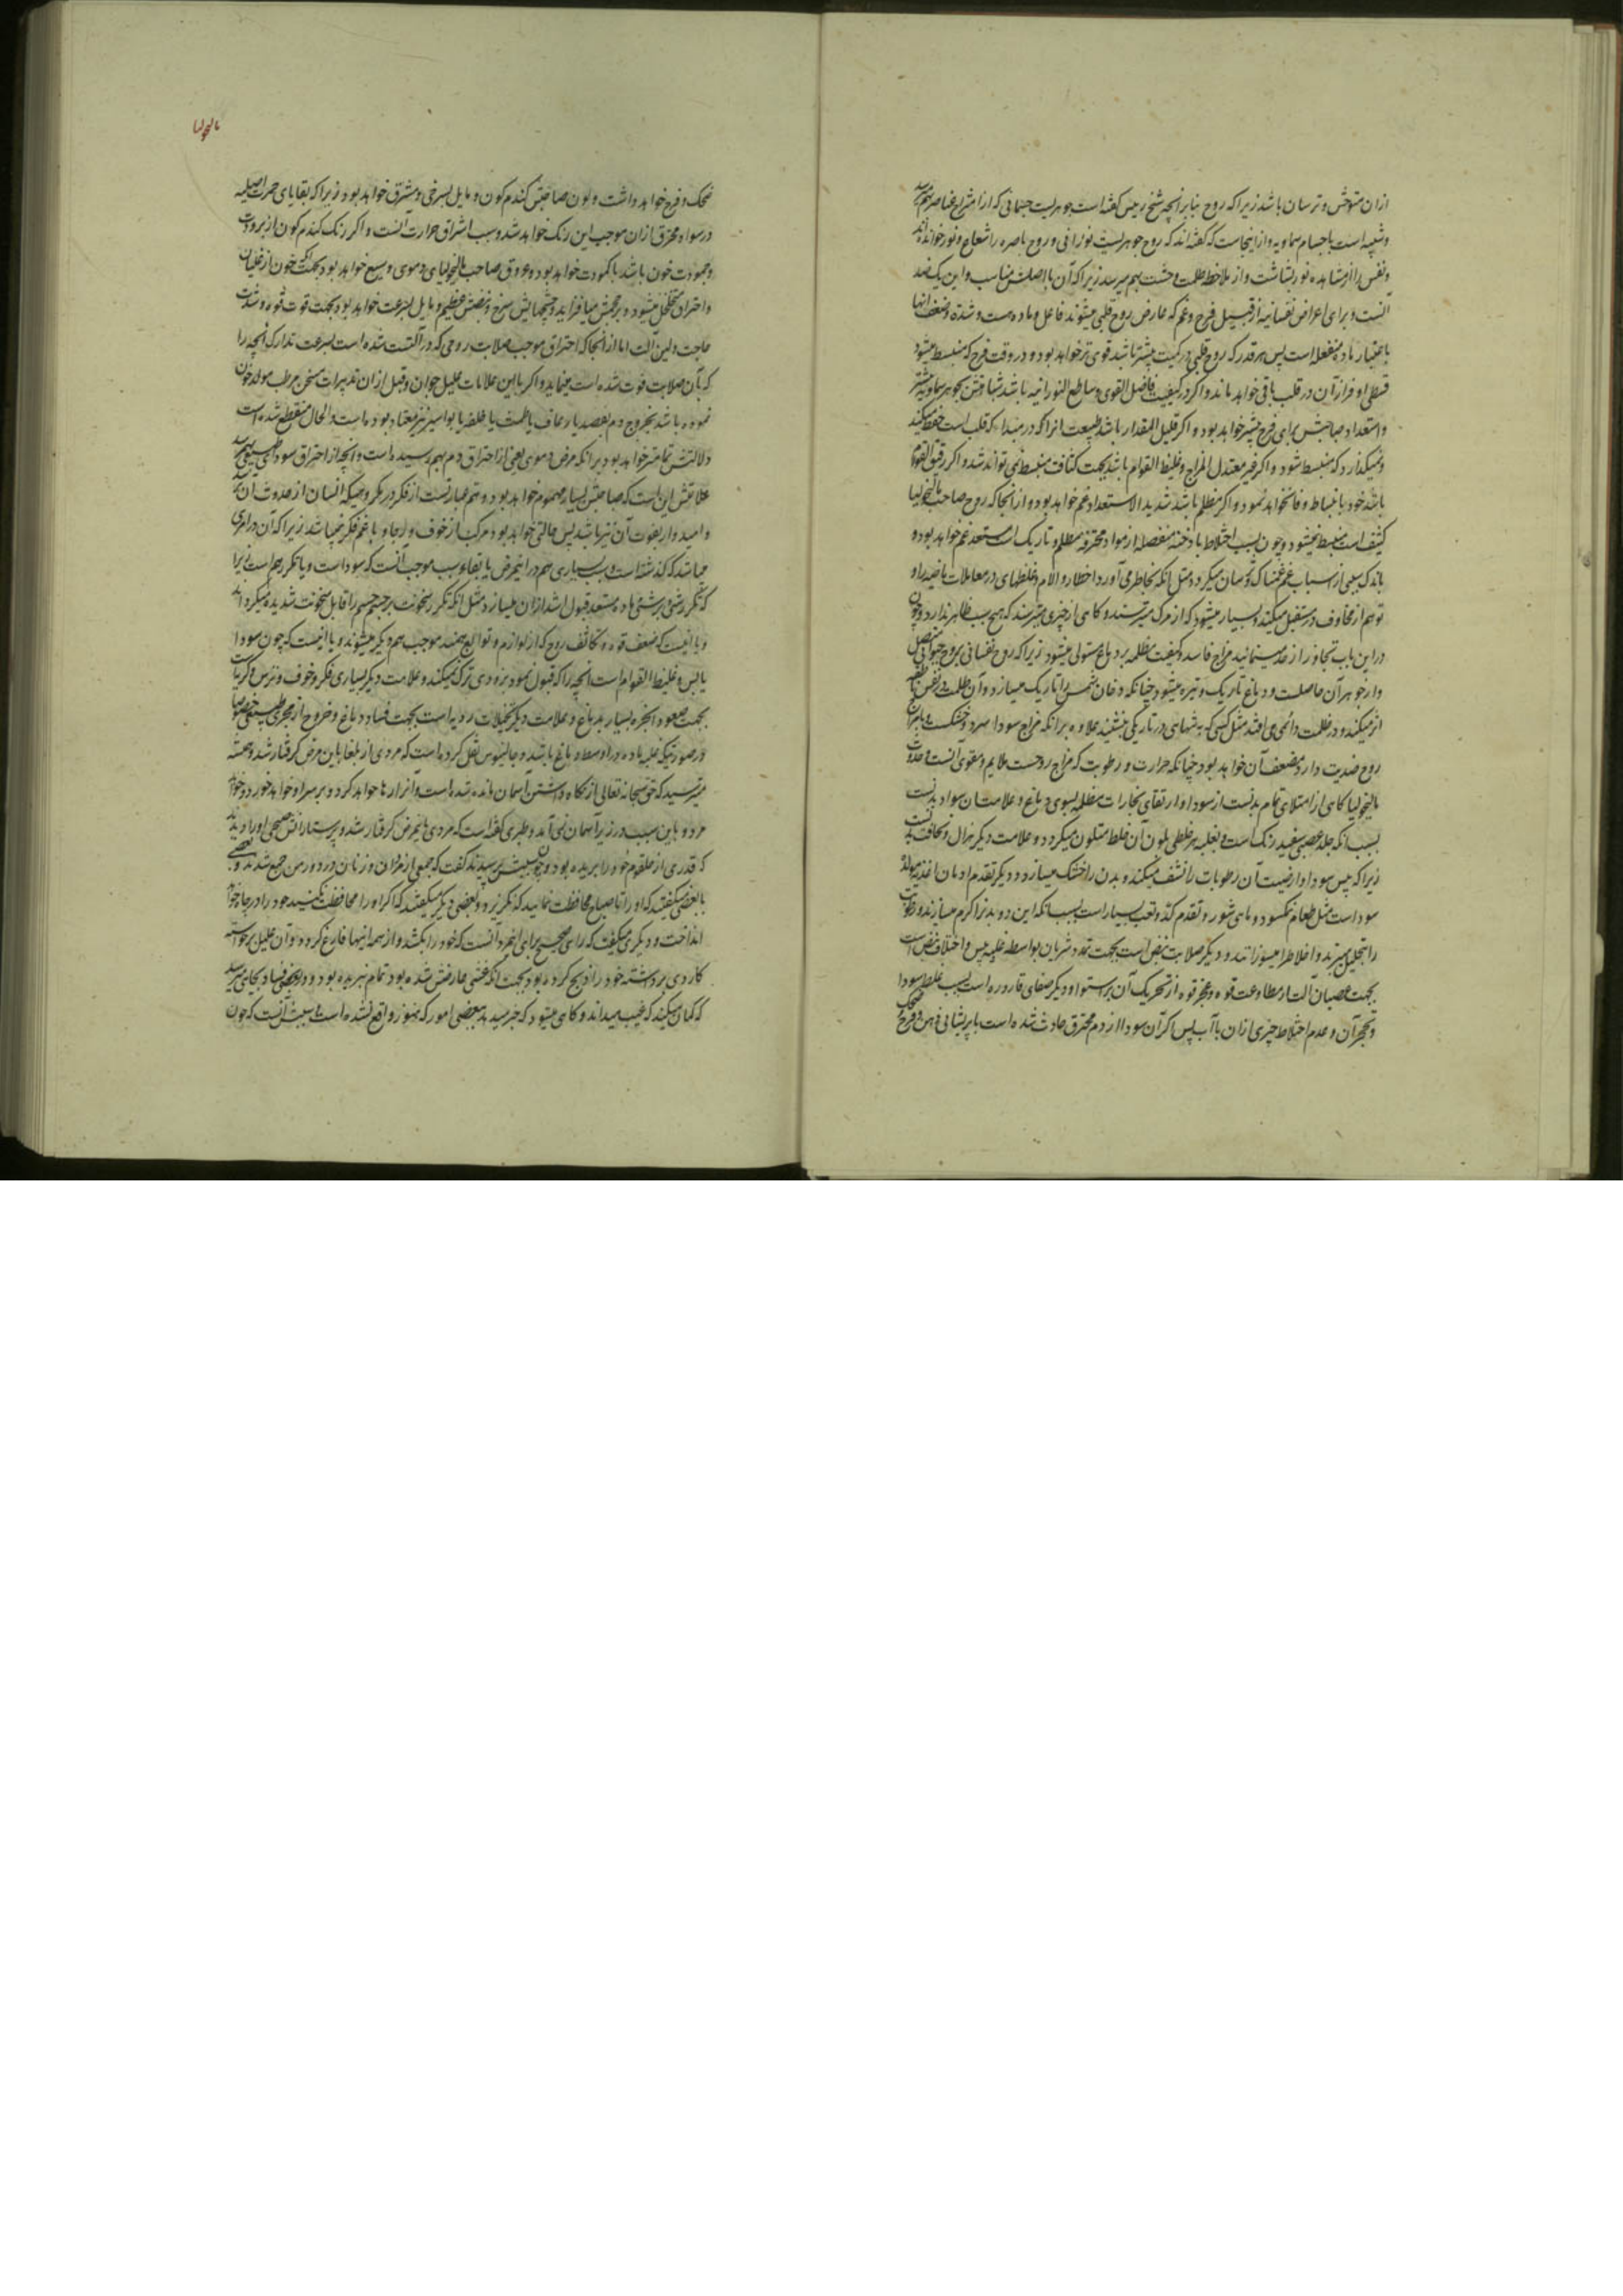 ازان متوحش و ترسان باشد زیرا که روح بنابر انچه شیخ رییس کفته است جوهریست جسمانی که از امتزاج عناصر بهم میرسد
و شبیه است باجسام سماویه و از اینجاست که کفته‌اند که روح جوهریست نورانی و روح باصره را شعاع و نور خوانده‌اند
و نفس را از مشاهده نور بشاشت و از ملاحظه ظلمت وحشت بهم میرسد زیرا که آن با اصلش مناسب و این یک ضد
آنست و برای اعراض نفسانیه از قبیل فرح و غم که عارض روح قلبی میشوند فاعل و ماده هست و شدة و ضعف انها
باعتبار ماده منفعله است پس هر قدر که روح قلبی در کمیت بیشتر باشد قوی تر خواهد بود و در وقت فرح که منبسط میشود
قسطی وافر از آن در قلب باقی خواهد ماند و اکر در کیفیت فاضل القوی و ساطع النورانیه باشد شباهتش بجوهر سماویه بیشتر
و استعداد صاحبش برای فرح بیشتر خواهد بود و اکر قلیل المقدار باشد طبیعت انرا که در مبداء که قلب است حفظ میکند
و نمیکذارد که منبسط شود و اکر غیر معتدل المزاج و غلیظ القوام باشد بجهت کثافت منبسط نمی تواند شد و اکر رقیق القوام
باشد خود بانبساط وفا نخواهد نمود و اکر مظلم باشد شدید الاستعداد غم خواهد بود و از انجا که روح صاحب مالیخولیا
کثیف است منبسط نمیشود و چون بسبب اختلاط بادخنه منفصله از مواد محترقه مظلم و تاریک است مستعد غم خواهد بود و
باندک سببی از اسباب غم غمناک و ترسان میکردد مثل انکه بخاطر می آورد اخطار و الام و غلطهای در معاملات ماضیه را و
توهم از مخاوف در مستقبل میکند و بسیار میشود که از مرک میترسند و کاهی از چیزی میترسند که هیچ سبب ظاهر ندارد و چون
در این باب تجاوز از حد مینمایند مزاج فاسد و کیفیت مظلمه بر دماغ مستولی میشود زیرا که روح نفسانی بروح حیوانی متصل
و از جوهر آن حاصلست و دماغ تاریک و تیره میشود چنانکه دخان شمس را تاریک میسازد و آن ظلمت در نفس ناطقه
اثر میکند و در ظلمت دائمی می افتد مثل کسی که به تنهای در تاریکی بنشیند علاوه بر انکه مزاج سودا سرد و خشکست با مزاج
روح ضدیت دارد و مضعف آن خواهد بود چنانکه حرارت و رطوبت که مزاج روحست ملایم و مقوی آنست و حدوث
مالیخولیا کاهی از امتلای تمام بدنست از سودا و ارتقای بخارات مظلمه بسوی دماغ و علامت ان سواد بدنست
بسبب انکه جلد عصبی سفید رنک است و بغلبه هر خلطی بلون آن خلط متلون میکردد و علامت دیکر هزال و نحافت بدنست
زیرا که یبس سودا و ارضیت آن رطوبات را نشف میکند و بدن را خشک میسازد و دیکر تقدم ادمان اغذیه مولد
سودا است مثل طعام نمکسود و ماهی شور و تقدم کد و تعب بسیار است بسبب انکه این دو بدنرا کرم میسازند و رطوبات
را بتحلیل میبرند و اخلاط را میسوزانند و دیکر صلابت نبض است بجهت تمدد شریان بواسطه غلبه یبس و اختلاف نبض است
بجهت عصیان آلت از مطاوعت قوه و عجز قوه از تحریک آن بر استوا و دیکر صفای قاروره است بسبب غلظ سودا
و تحجر آن و عدم اختلاط چیزی ازان با آب پس اکر آن سودا از دم محترق حادث شده است با پریشانی ذهن و فرح ضحک
مالیخولیا
ضحک و فرح خواهد داشت و لون صاحبش کندم کون و مایل بسرخی و مشرق خواهد بود زیرا که بقایای حمرت اصلیه
در سواد محترق ازان موجب این رنک خواهد شد و سبب اشراق حرارت آنست و اکر رنک کندم کون از برودت
و جمودت خون باشد با کمودت خواهد بود و عروق صاحب مالیخولیای دموی وسیع خواهد بود بجهت انکه خون از غلیان
و احتراق متخلخل میشود و بر حجمش میافزاید و چشمهایش سرخ و نبضش عظیم و مایل بسرعت خواهد بود بجهت قوت قوه و شدت
حاجت و لین آلت اما از انجا که احتراق موجب صلابت رومی که در آلتست شده است بسرعت تدارک انچه را
که بآن صلابت فوت شده است مینماید و اکر با این علامات علیل جوان و قبل ازان تدبیرات مسخن مرطب مولد خون
نموده باشد بخروج دم بفصد یا رعاف یا طمث یا خلفه یا بواسیر نیز معتاد بوده است و الحال منقطع شده است
دلالتش تمامتر خواهد بود بر انکه مرض دموی یعنی از احتراق دم بهم رسیده است و انچه از احتراق سودای طبیعی بهم میرسد
علامتش این است که صاحبش بسیار مهموم خواهد بود و هم عبارتست از فکر در مکروهیکه انسان از حدوث ان
و امیدوار بفوت آن نیز باشد پس حالتی خواهد بود مرکب از خوف و رجا و با غم فکر نمیباشد زیرا که آن در امری
میباشد که کذشته است و بسیاری هم در اینمرض یا بقاء سبب موجب آنست که سودا است و یا تکرر هم است زیرا
که تکرر شئ بر شئ ماده مستعد قبول اشد ازان میسازد مثل انکه تکرر سخونت بر جسم جسم را قابل سخونت شدیده میکرداند
و یا انیست که ضعف قوه و تکاثف روح که از لوازم و توابع همند موجب هم دیکر میشوند و یا انیست که چون سودا
یابس و غلیظ القوام است انچه را که قبول نمود بزودی ترک نمیکند و علامت دیکر بسیاری فکر و خوف و ترس و کریه است
بجهت صعود ابخره بسیار بدماغ و علامت دیکر تخیلات ردیه است بجهت فساد دماغ و خروج از مجری طبیعی خصوصا
در صورتیکه غلبه ماده در اوسط دماغ باشد و جالینوس نقل کرده است که مردی از بلغا باین مرض کرفتار شد و همیشه
میترسید که حق سبحانه تعالی از نکاه داشتن آسمان مانده شده است و آنرا رها خواهد کرد و بر سر او خواهد خورد و خواهد
مرد و باین سبب در زیر آسمان نمی آمد و طبری کفته است که مردی باینمرض کرفتار شد و پرستارانش صبحی او را دیدند
که قدری از حلقوم خود را بریده بود و چون سببش پرسیدند کفت که جمعی از مردان و زنان در دور من جمع شدند و بعضی
با بعضی میکفتند که او را تا صباح محافظت نمائید که نکریزد و بعضی دیکر میکفتند که اکر او را محافظت نکنید خود را در چاه خواهد
انداخت و دیکری میکفت که رای صحیح برای اینمرد آنست که خود را بکشد و از همه اینها فارغ کردد و آن علیل برخواسته
کاردی برداشته خود را ذبح کرده بود بجهت انکه غشی عارضش شده بود تمام نبریده بود و در بعضی فساد بجای میرسد
که کمان میکند که غیب میداند و کاهی میشود که خبر میدهد ببعضی امور که هنوز واقع نشده است و سببش آنست که چون